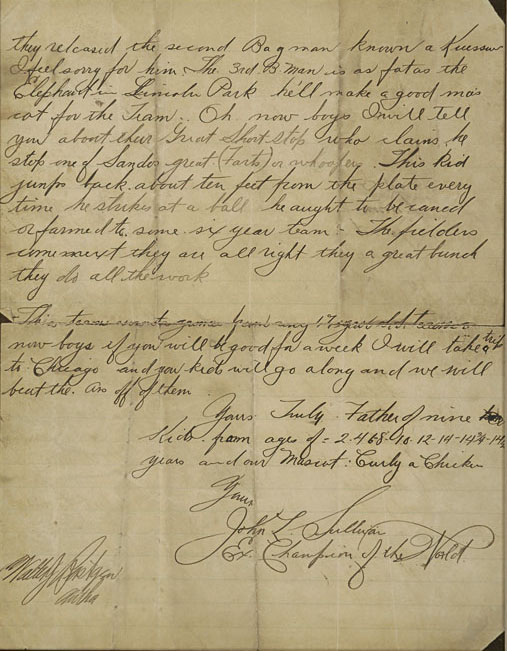 they released the second Bagman known a
I feel sorry for him. The 3rd B Man is as fat as the
Elephant in Lincoln Park he'll make a good mas
cot for the Team. Oh now boys I will tell
you about their Great Short Stop who claims he
stop one of Sandos great (Farts) or whoopers. This Kid
jumps back about ten feet from the plate every
time he strikes at a ball he aught to be caned
or farmed to some six year team. The fielders
come next they are all right they a great bunch
they do all the work
This team
now boys if you will be good for a week I will take a trip
to Chicago and you kids will go along and we will
beat the. Ars off of them.
Yours Truly Father of nine
Kids from ages of = 2-4-6-8-10-12-14-14¾-14½
years and our Mascot: Curly a Chicken
Yours
John L Sullivan
Ex. Champion of the World.